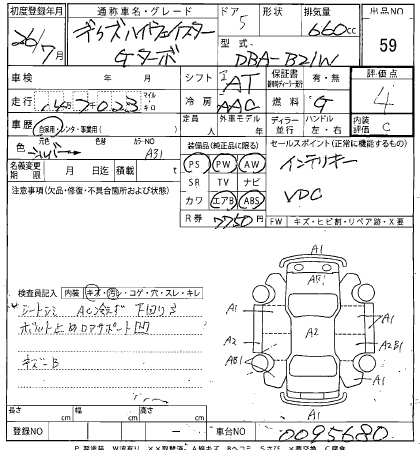 初度登録年月 通称車名・グレード ドア 形状 排気量 出品NO
26年/7月 デイズハイウェイスター 5 660cc 59
Gターボ 型式 DBA-B21W
車検 年 月 シフト AT 保証書 有・無 評価点
走行 147023 マイル キロ 冷房 AAC 燃料 G 4
車歴 自家用・レンタ・事業用( ) 定員 人 外車モデル 年 ディーラー 並行 ハンドル 左・右 内装評価 C
色 元色 シルバー 色替 カラーNO A31
装備品(純正品に限る) セールスポイント(正常に機能するもの)
名義変更期限 月 日迄 積載 t
PS PW AW インテリキー
注意事項(欠品・修復・不具合箇所および状態)
SR TV ナビ VDC
カワ エアB ABS
R券 7750円 FW キズ・ヒビ割・リペア跡・X要
検査員記入 内装 キズ・汚レ・コゲ・穴・スレ・キレ
シートシミ
ボルト止めロアサポート凹
キズ-B
A1
A1
A1
A1
A2
A2
A2B1
AB1
A1
A1
長さ cm 幅 cm 高さ cm
登録NO 車台NO 0095680